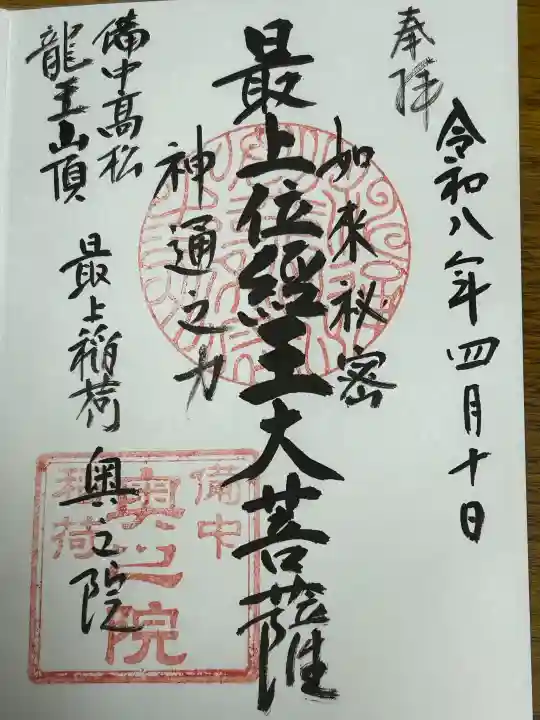 奉拝
令和八年四月十日
如来秘密
最上位經王大菩薩
神通之力
備中高松
龍王山頂
最上稲荷 奥之院
備中
奥之院
稲荷